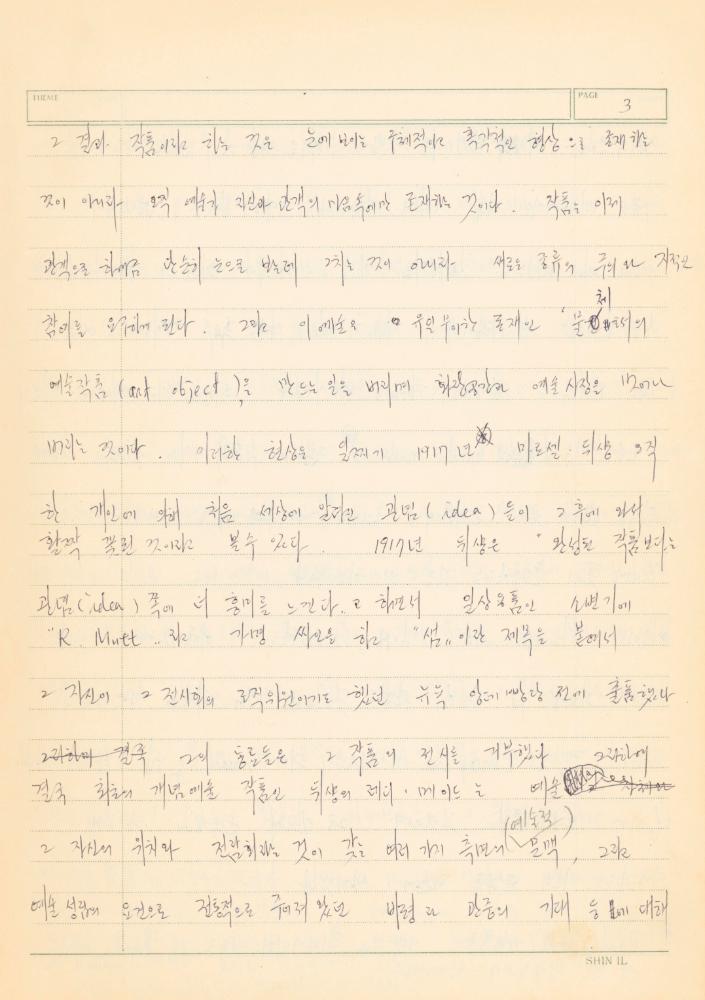 THEME
PAGE 3
그 결과 작품이라고 하는 것은 눈에 보이는 구체적이고 촉각적인 형상으로 존재하는
것이 아니라 오직 예술가 자신과 관객의 마음속에만 존재하는 것이다. 작품은 이제
관객으로 하여금 단순히 눈으로 보는데 그치는 것이 아니라 새로운 종류의 주의와 지적인
참여를 요구하게 된다. 그리고 이 예술은 유일무이한 존재인 '물체
예술작품 (art object)을 만드는 일을 버리며 화랑공간과 예술시장을 벗어나
버리는 것이다. 이러한 현상은 일찌기 1917년 마르셀·뒤샹 오직
한 개인에 의해 처음 세상에 알려진 관념(idea)들이 그 후에 와서
활짝 꽃핀 것이라고 볼 수 있다. 1917년 뒤샹은 "완성된 작품보다는
관념(idea) 쪽에 더 흥미를 느낀다"고 하면서 일상용품인 소변기에
"R. Mutt"라고 가명 싸인을 하고 "샘"이란 제목을 붙여서
그 자신이 그 전시회의 조직위원이기도 했던 뉴욕 앙데빵당 전에 출품했다
그러하여 결국 그의 동료들은 그 작품의 전시를 거부했다 그러하여
결국 최초의 개념예술 작품인 뒤샹의 레디·메이드는 예술
그 자신의 위치와 전람회라는 것이 갖는 여러 가지 측면의 (예술적) 문맥, 그리고
예술 성립의 요건으로 전통적으로 주어져 왔던 비평과 관중의 기대 등에 대해
SHIN IL